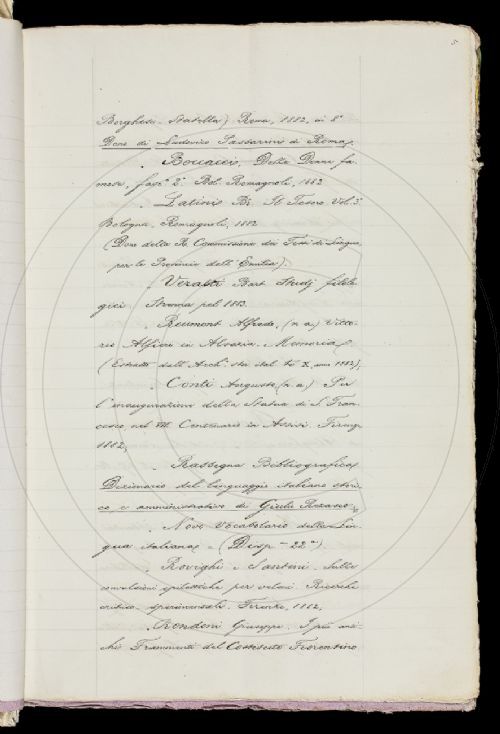 5
Borghesi - Statella) Roma, 1882, in 8°
Dono di Ludovico Passarini di Roma.
. Boccacci, Delle Donne fa-
mose, fasc. 2° Bol. Romagnoli, 1882
. Latinis Br. Il Tesoro Vol. 3°
Bologna, Romagnoli, 1882
(Dono della R. Commissione dei Testi di Lingua
per le Provincie dell'Emilia).
. Veratti Bart. Studj filolo-
gici. Strenna pel 1883.
. Reumont Alfredo, (n a) Vitto-
rio Alfieri in Alsazia. Memoria
(Estratto dall'Arch. sto ital. to X, anno 1882),
. Conti Augusto (n a) Per
l'inaugurazione della Statua di S. Fran-
cesco nel VII Centenario in Assisi. Firenze
1882,
. Rassegna Bibliografica
Dizionario del linguaggio italiano stori-
co e amministrativo di Giulio Rezasco
. Novo Vocabolario della Lin-
gua italiana = (Disp - 22ª)
. Rovighi e Santini. Sulle
convulsioni epilettiche per veleni. Ricerche
critico-sperimentali. Firenze, 1882,
. Rondoni Giuseppe. I più anti-
chi Frammenti del Costituto Fiorentino